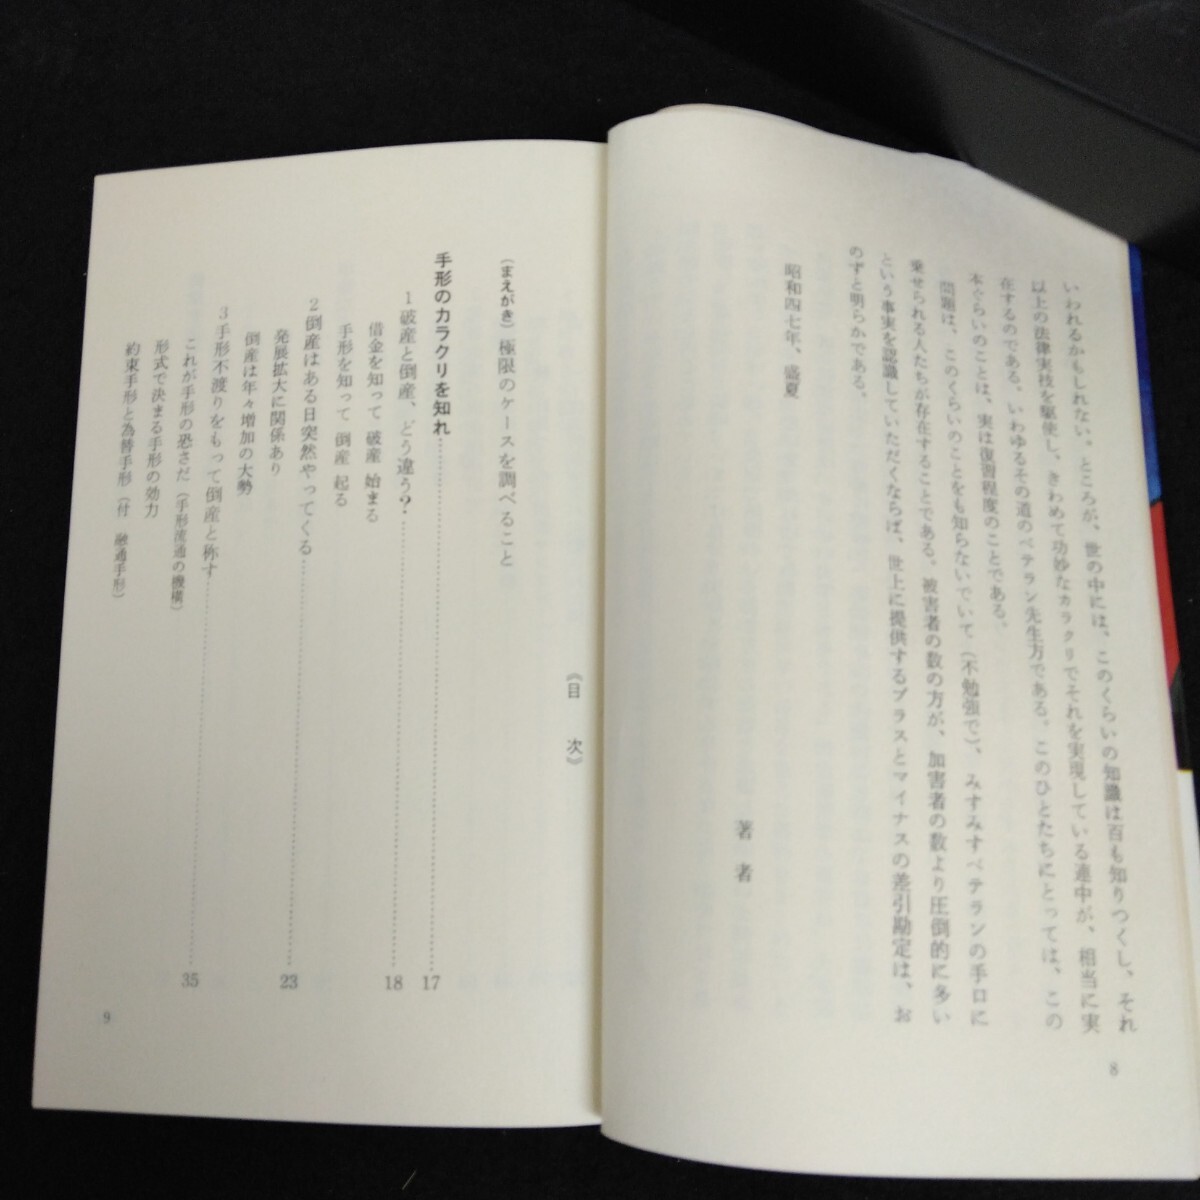 いわれるかもしれない。ところが、世の中には、このくらいの知識は百も知りつくし、それ
以上の法律実技を駆使し、きわめて功妙なカラクリでそれを実現している連中が、相当に実
在するのである。いわゆるその道のベテラン先生方である。このひとたちにとっては、この
本ぐらいのことは、実は復習程度のことである。
問題は、このくらいのことをも知らないでいて（不勉強で）、みすみすベテランの手口に
乗せられる人たちが存在することである。被害者の数の方が、加害者の数より圧倒的に多い
という事実を認識していただくならば、世上に提供するプラスとマイナスの差引勘定は、お
のずと明らかである。
昭和四七年、盛夏
著 者
8
《目 次》
（まえがき）極限のケースを調べること
手形のカラクリを知れ……17
1 破産と倒産、どう違う?……18
借金を知って 破産 始まる
手形を知って 倒産 起る
2 倒産はある日突然やってくる……23
発展拡大に関係あり
倒産は年々増加の大勢
3 手形不渡りをもって倒産と称す……35
これが手形の恐さだ（手形流通の機構）
形式で決まる手形の効力
約束手形と為替手形（付 融通手形）
9